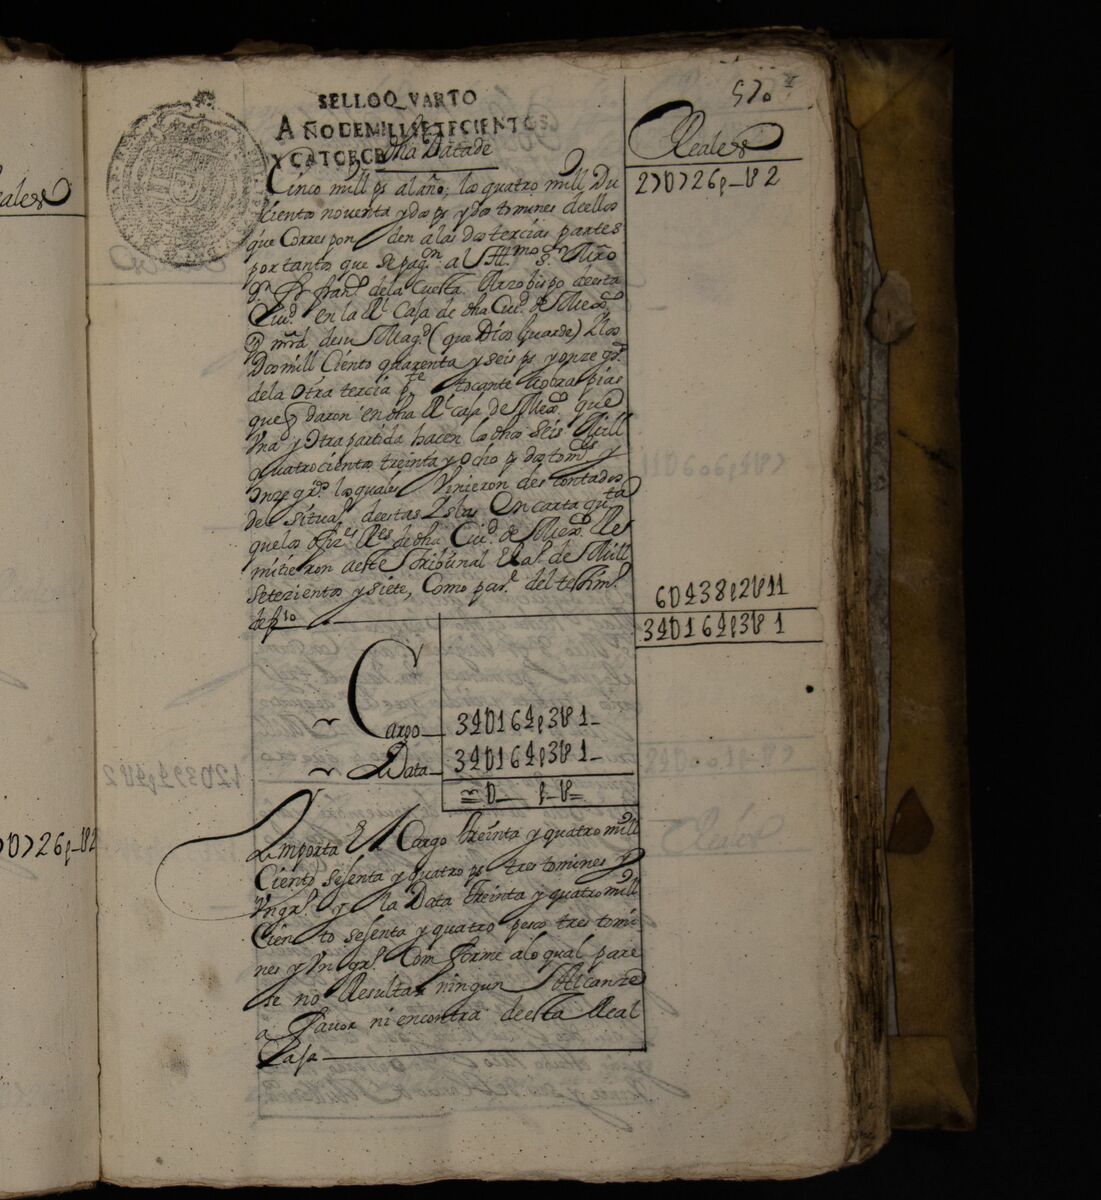 570
SELLO QVARTO
AÑO DE MIL SETECIENTOS
Y CATORCE
dha Data de
Reales
27U726p_U2
Cinco mill ps al año; los quatro mill Du
cientos noventa y dos ps y dos tomines deellos
que Corresponden alas dos tercias partes
por tanto que se pagn al Illmo Sr Mro
Dn fr. Franco dela Cuesta Arzobispo deesta
Ciud en la Rl Caja de dha Ciud de Mexco
mrd desu Magd (que Dios Guarde) Y los
Dos mill Ciento quarenta y seis ps y onze gs
dela Otra tercia pte tocante a obras pias
que daron en dha Rl caja de Mexco que
Vna y otra partida hacen los dhos seis Mill
quatrocientos treinta y ocho ps dos toms y
onze gs los quales Vinieron descontados
del situado deestas Yslas En carta qta
que los ofizes Res de dha Ciud de Mexco Re
mitieron aeste Tribunal El aº de Mill
setezientos y siete, Como pare del testimº
6U438p2U11
34U164p3U1
Cargo_ 34U164p3U1_
Data_ 34U164p3U1_
=U___p_U=
Ymporta El Cargo treinta y quatro mill
Ciento sesenta y quatro ps tres tomines y
Vn gr. y la Data treinta y quatro mill
Ciento sesenta y quatro pesos tres tomi
nes y Vn gr. Comforme alo qual pare
se no Resulta ningun Alcanze
a favor ni encontra deesta Real
Caja
7U726p_U2